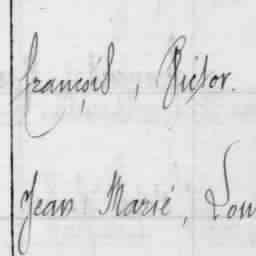 François, Victor.
Jean Marié, Lou